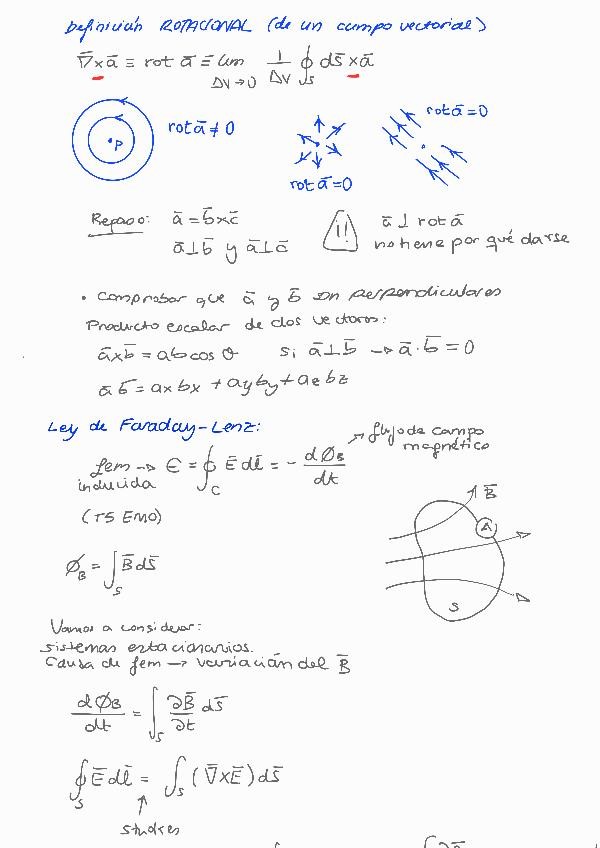 Definición ROTACIONAL (de un campo vectorial)
∇̄×ā ≡ rot ā ≡ lim_{ΔV→0} 1/ΔV ∮_S ds̄ × ā
P
rot ā ≠ 0
rot ā = 0
rot ā = 0
Repaso: ā = b̄×c̄
ā⊥b̄ y ā⊥c̄
!! ā ⊥ rot ā
no tiene por qué darse
• Comprobar que ā y b̄ son perpendiculares
Producto escalar de dos vectores:
ā×b̄ = ab cos θ si ā⊥b̄ → ā·b̄ = 0
ā b̄ = axbx + ayby + azbz
Ley de Faraday-Lenz:
flujo de campo
magnético
fem → ε = ∮_C Ē dl̄ = - dØ_B/dt
inducida
(T5 EMO)
B̄
A
S
Ø_B = ∫_S B̄ ds̄
Vamos a considerar:
sistemas estacionarios.
Causa de fem → variación del B̄
dØ_B/dt = ∫_S ∂B̄/∂t ds̄
∮_S Ē dl̄ = ∫_S (∇̄×Ē) ds̄
↑
stokes